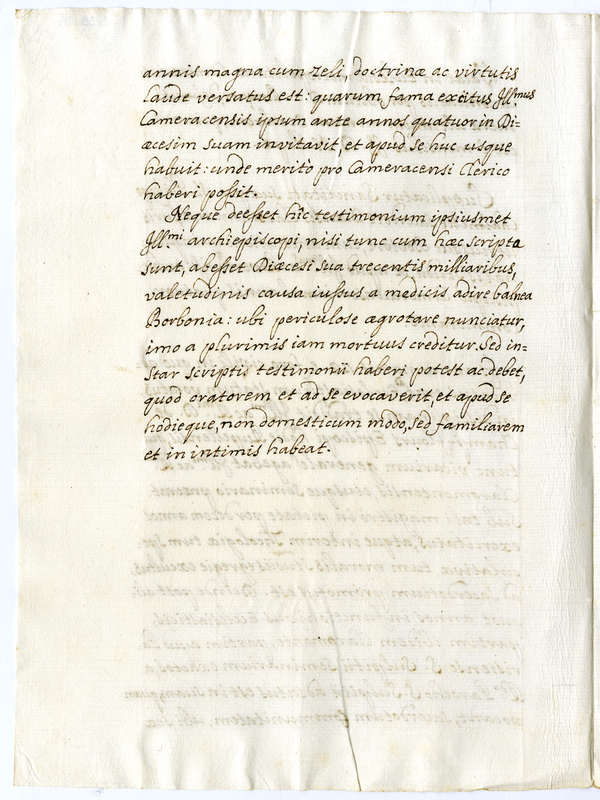 annis magna cum zeli, doctrinæ ac virtutis
laude versatus est: quarum fama excitus Jllmus
Cameracensis ipsum ante annos quatuor in Di=
æcesim suam invitavit, et apud se huc usque
habuit: unde meritò pro Cameracensi Clerico
haberi possit.
Neque deesset hîc testimonium ipsiusmet
Jllmi archiepiscopi, nisi tunc cum hæc scripta
sunt, abesset Diæcesi sua trecentis milliaribus,
valetudinis causa iussus a medicis adire balnea
Borbonia: ubi periculose ægrotare nunciatur,
imo a plurimis iam mortuus creditur. Sed in=
star scriptis testimonii haberi potest ac debet,
quod oratorem et ad se evocaverit, et apud se
hodieque, non domesticum modo, sed familiarem
et in intimis habeat.